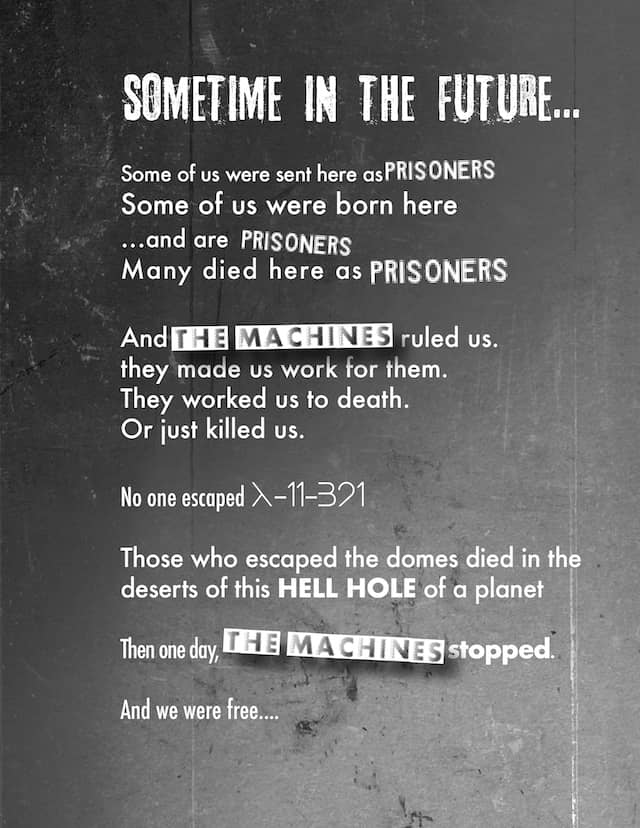 SOMETIME IN THE FUTURE...
Some of us were sent here as PRISONERS
Some of us were born here
...and are PRISONERS
Many died here as PRISONERS
And THE MACHINES ruled us.
they made us work for them.
They worked us to death.
Or just killed us.
No one escaped λ-11-321
Those who escaped the domes died in the
deserts of this HELL HOLE of a planet
Then one day, THE MACHINES stopped.
And we were free....